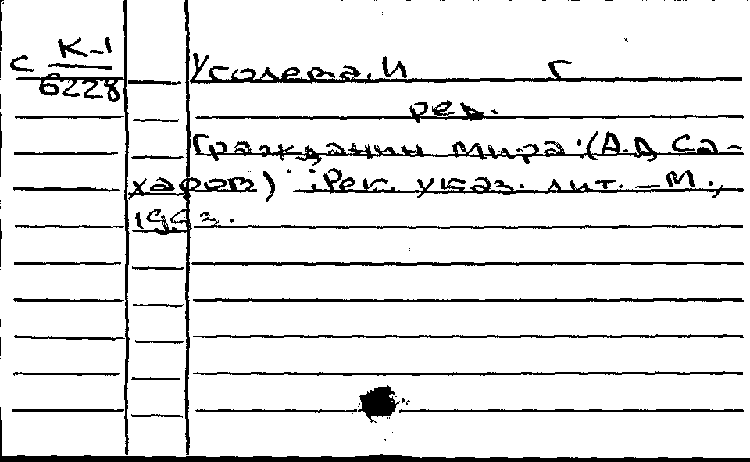 С К-1
6228
Усолева. И Г
рев.
Гражданин мира: (А.Д Са-
харов) : Рек. указ. лит. – М.,
1993.